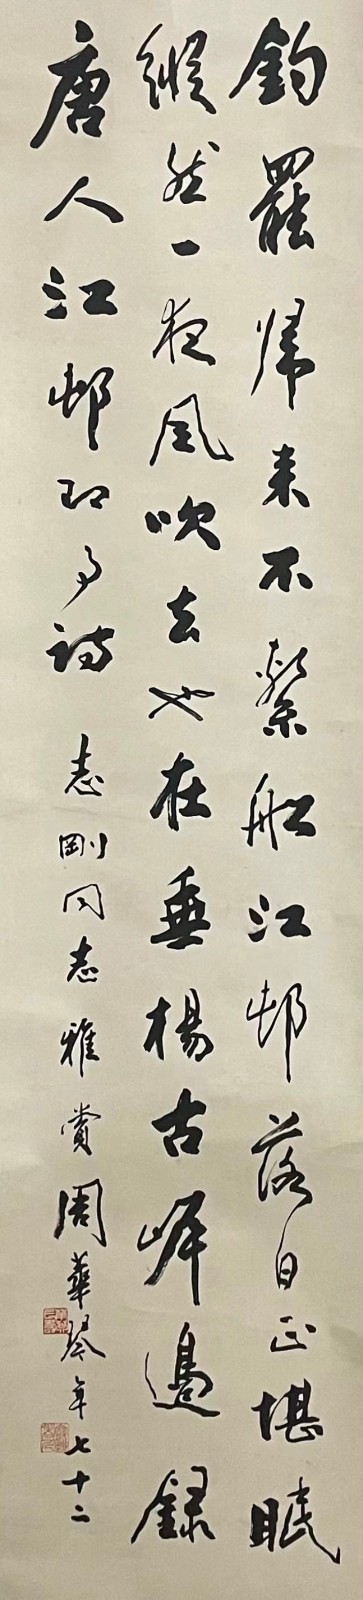 釣罷歸来不繫船江邨落日正堪眠
縱然一夜風吹去也在垂楊古岸邊錄
唐人江邨即事詩 志剛同志雅賞 周華琴年七十二